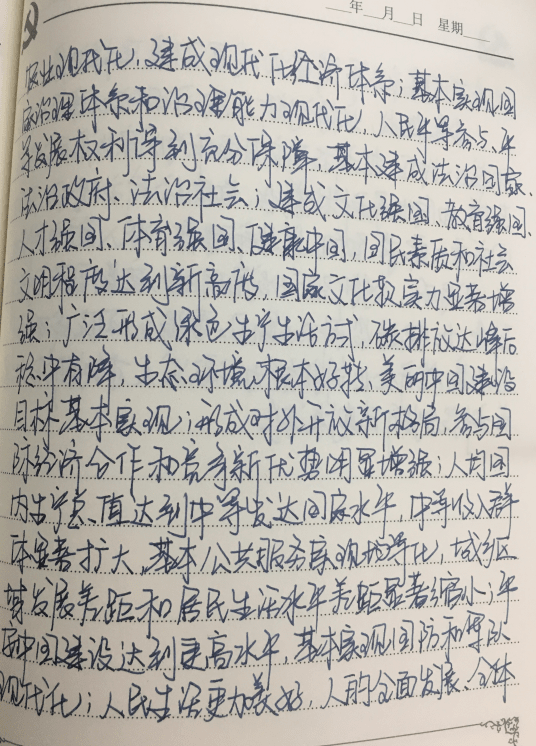 年 月 日 星期
农业现代化,建成现代化经济体系;基本实现国
家治理体系和治理能力现代化,人民平等参与、平
等发展权利得到充分保障,基本建成法治国家、
法治政府、法治社会;建成文化强国、教育强国、
人才强国、体育强国、健康中国,国民素质和社会
文明程度达到新高度,国家文化软实力显著增
强;广泛形成绿色生产生活方式,碳排放达峰后
稳中有降,生态环境根本好转,美丽中国建设
目标基本实现;形成对外开放新格局,参与国
际经济合作和竞争新优势明显增强;人均国
内生产总值达到中等发达国家水平,中等收入群
体显著扩大,基本公共服务实现均等化,城乡区
域发展差距和居民生活水平差距显著缩小;平
安中国建设达到更高水平,基本实现国防和军队
现代化;人民生活更加美好,人的全面发展、全体